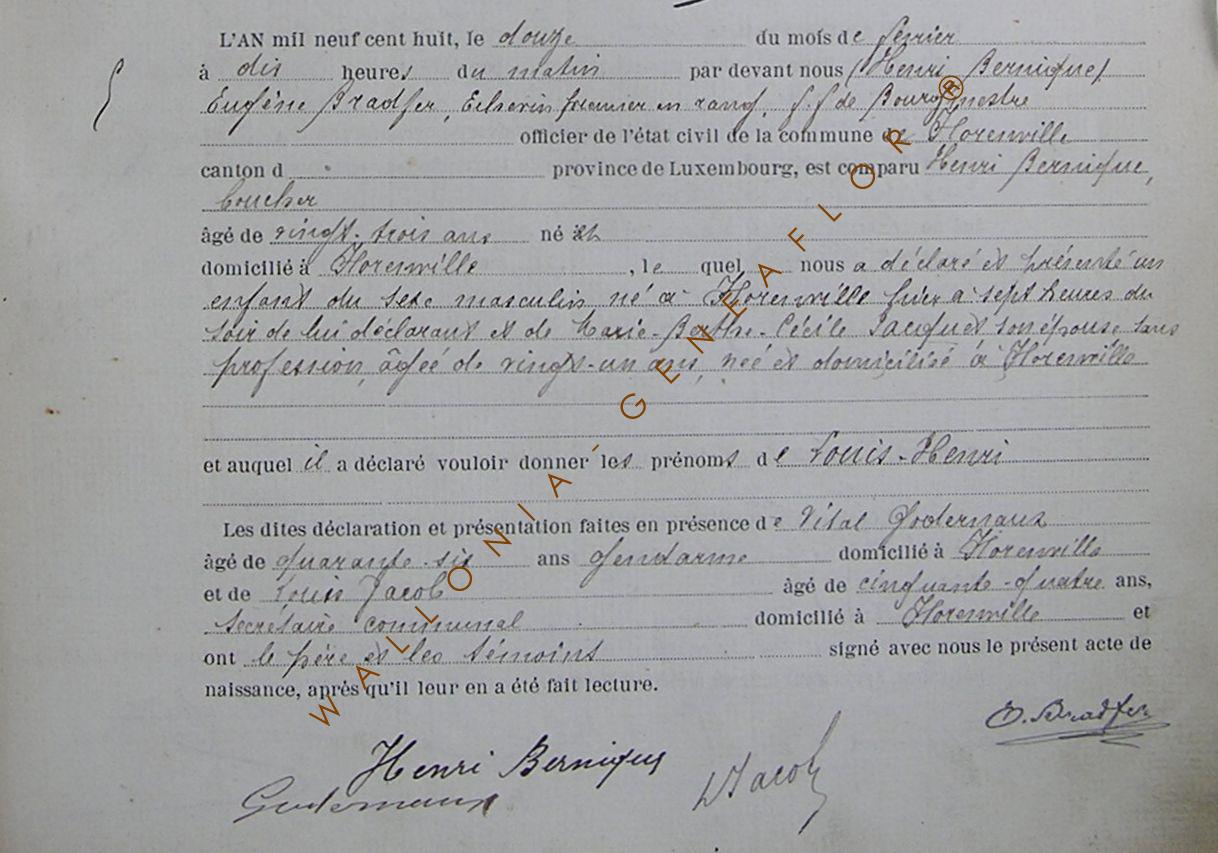 L'AN mil neuf cent huit, le douze du mois de février
à dix heures du matin par devant nous (Henri Bernique)
Eugène Bradfer, Echevin premier en rang, f.f de Bourgmestre
officier de l'état civil de la commune de Florenville
canton d province de Luxembourg, est comparu Henri Bernique,
boucher
âgé de vingt-trois ans né
domicilié à Florenville, le quel nous a déclaré et présenté un
enfant du sexe masculin né à Florenville hier à sept heures du
soir de lui déclarant et de Marie-Berthe-Cécile Jacques son épouse sans
profession, âgée de vingt-un ans, née et domiciliée à Florenville
et auquel il a déclaré vouloir donner les prénoms de Louis-Henri
Les dites déclaration et présentation faites en présence de Vital Godernaux
âgé de quarante-six ans gendarme domicilié à Florenville
et de Louis Jacob âgé de cinquante-quatre ans,
secrétaire communal domicilié à Florenville et
ont le père et les témoins signé avec nous le présent acte de
naissance, après qu'il leur en a été fait lecture.
E. Bradfer
Henri Bernique
Godernaux
L Jacob
WALLONIA-GENEAFLOR®